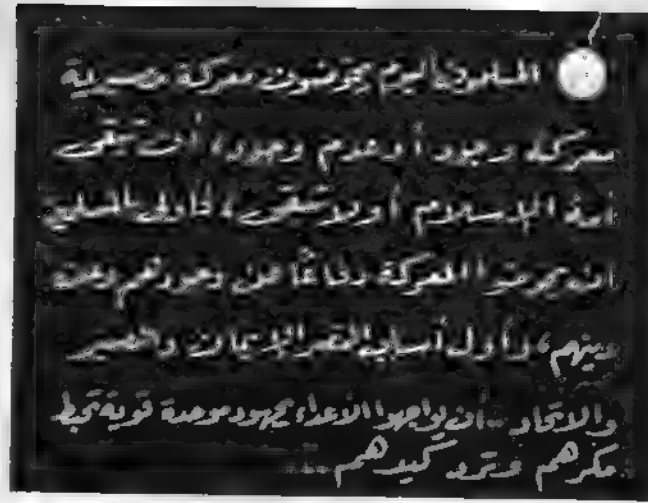 المسلمون اليوم يخوضون معركة مصيرية
معركة وجود أو عدم وجود، أن تبقى
أمة الإسلام أو لا تبقى، فعلى المسلمين
أن يخوضوا المعركة دفاعًا عن وجودهم وعن
دينهم، وأول أسباب النصر الإيمان والصبر
والاتحاد .. أن يواجهوا الأعداء بجهود موحدة قوية تحبط
مكرهم وترد كيدهم ..